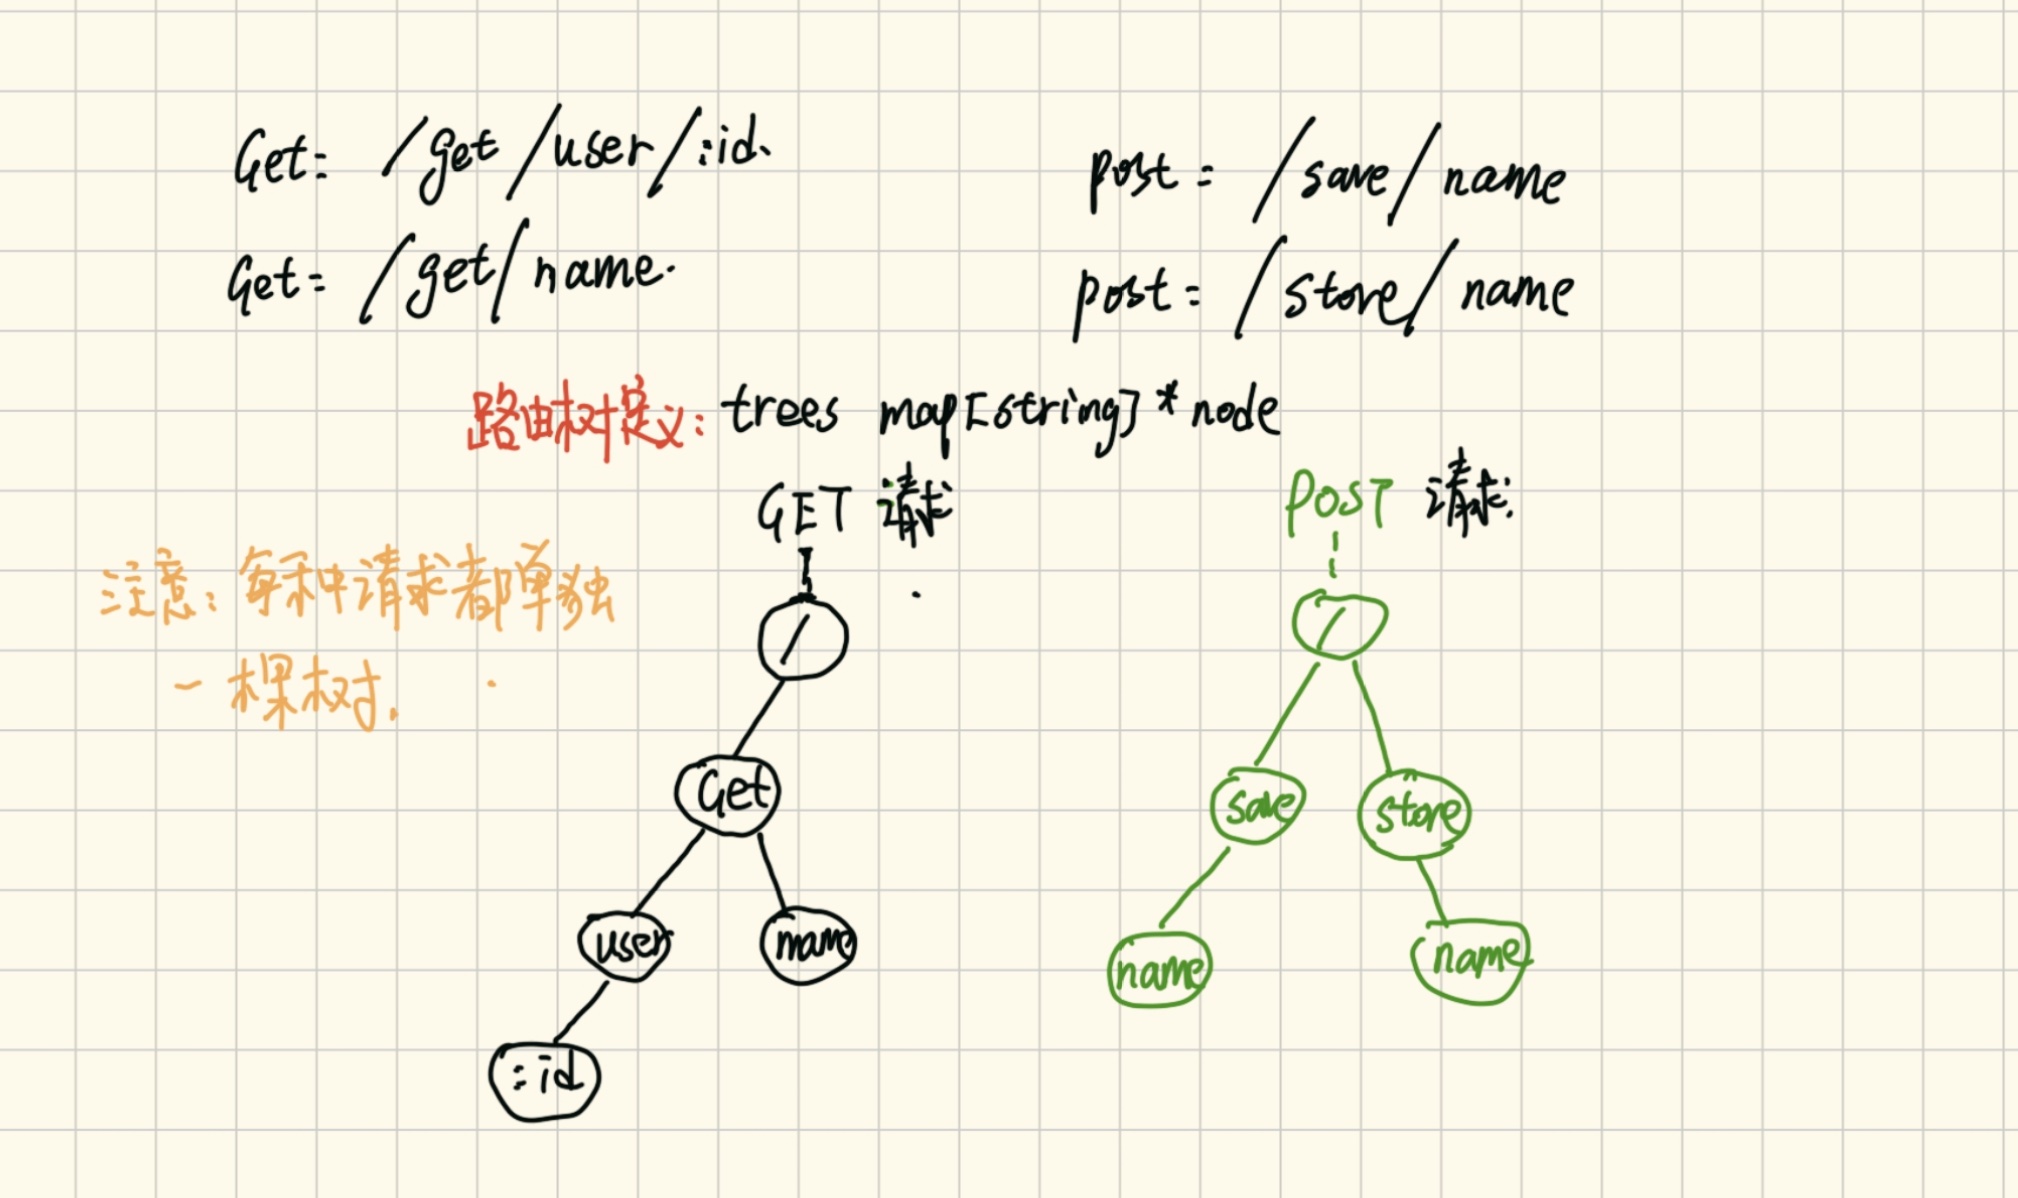 Get: /get/user/:id.
Get: /get/name.
post: /save/name
post: /store/name
路由树定义: trees map[string]*node
GET 请求
POST 请求:
注意: 每种请求都单独
一棵树.
/
Get
user
name
:id
/
save
store
name
name